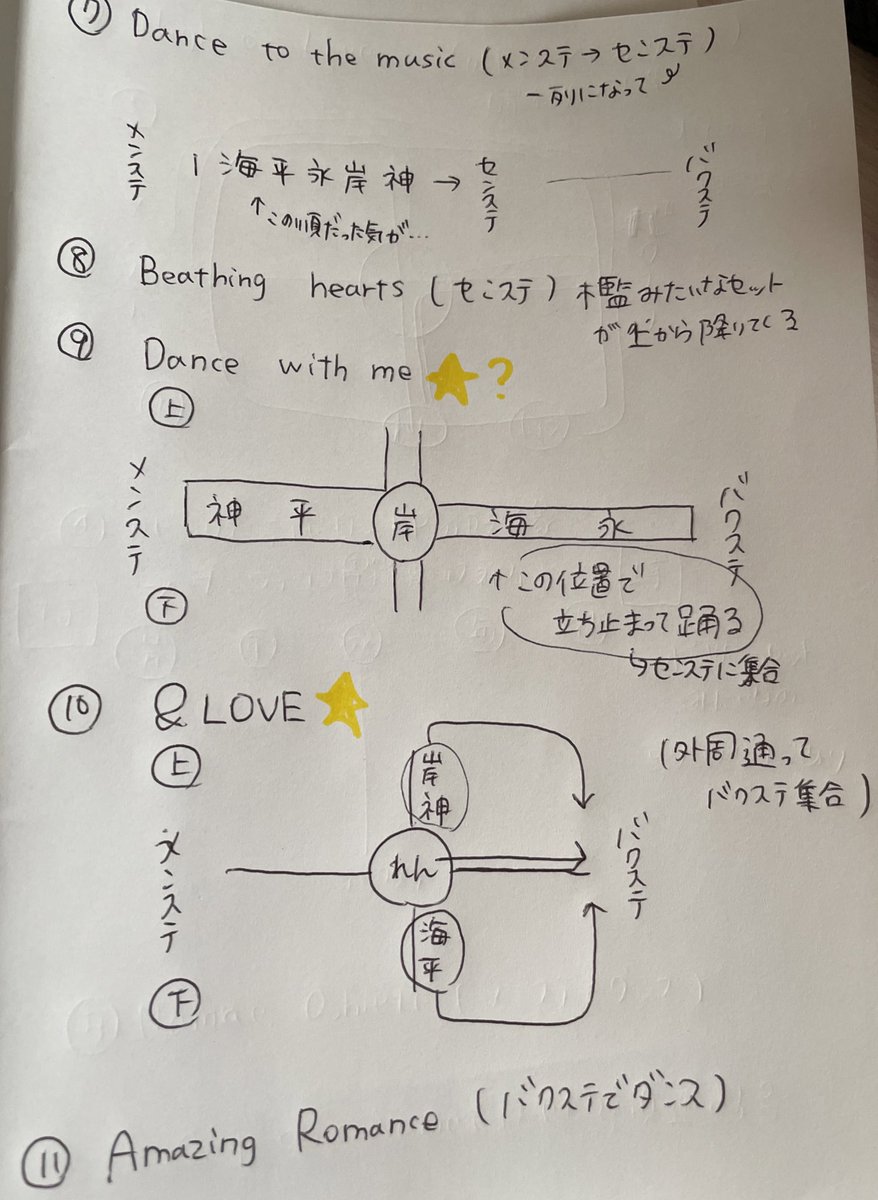 ⑦ Dance to the music (メンステ → センステ)
一列になって
メンステ
| 海平永岸神 →
センステ
バクステ
↑この順だった気が…
⑧ Beathing hearts (センステ) 檻みたいなセット
が上から降りてくる
⑨ Dance with me ★?
上
メンステ
神 平 岸 海 永
バクステ
下
↑この位置で
立ち止まって踊る
↳センステに集合
⑩ & LOVE ★
上
岸
神
(外周通って
バクステ集合)
メンステ
れん
バクステ
海
平
下
⑪ Amazing Romance (バクステでダンス)